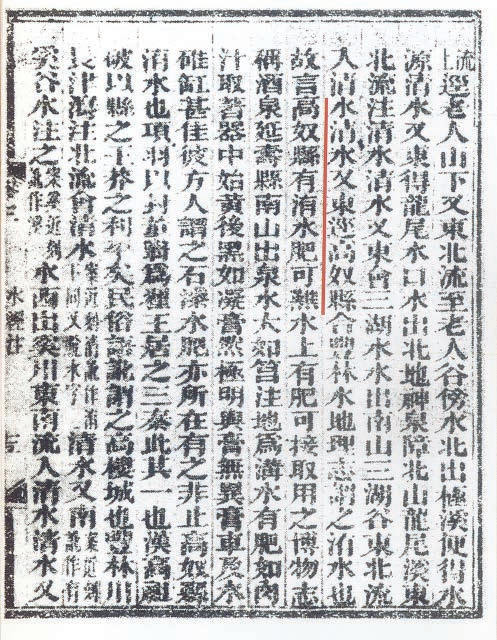 流上逕老人山下又東北流至老人谷傍水北出極溪便得水
源清水又東得龍尾水口水出北地神泉障北山龍尾溪東
北流注清水清水又東會三湖水水出南山三湖谷東北流
入清水清水又東逕高奴縣合豐林水地理志謂之洧水也
故言高奴縣有洧水肥可難水上有肥可接取用之博物志
稱酒泉延壽縣南山出泉水大如筥注地爲溝水有肥如肉
汁取著器中始黃後黑如凝膏然極明與膏無異膏車及水
碓缸甚佳彼方人謂之石漆水肥亦所在有之非止高奴縣
洧水也項羽以封董翳爲翟王居之三秦此其一也漢高祖
破以縣之王莽之利平矣民俗語訛謂之高樓城也豐林川
長津瀉注北流會清水案近刻清訛作洧下同又脫水字清水又南案近刻訛作有
奚谷水注之案奚近刻訛作溪水西出奚川東南流入清水清水又
水經注